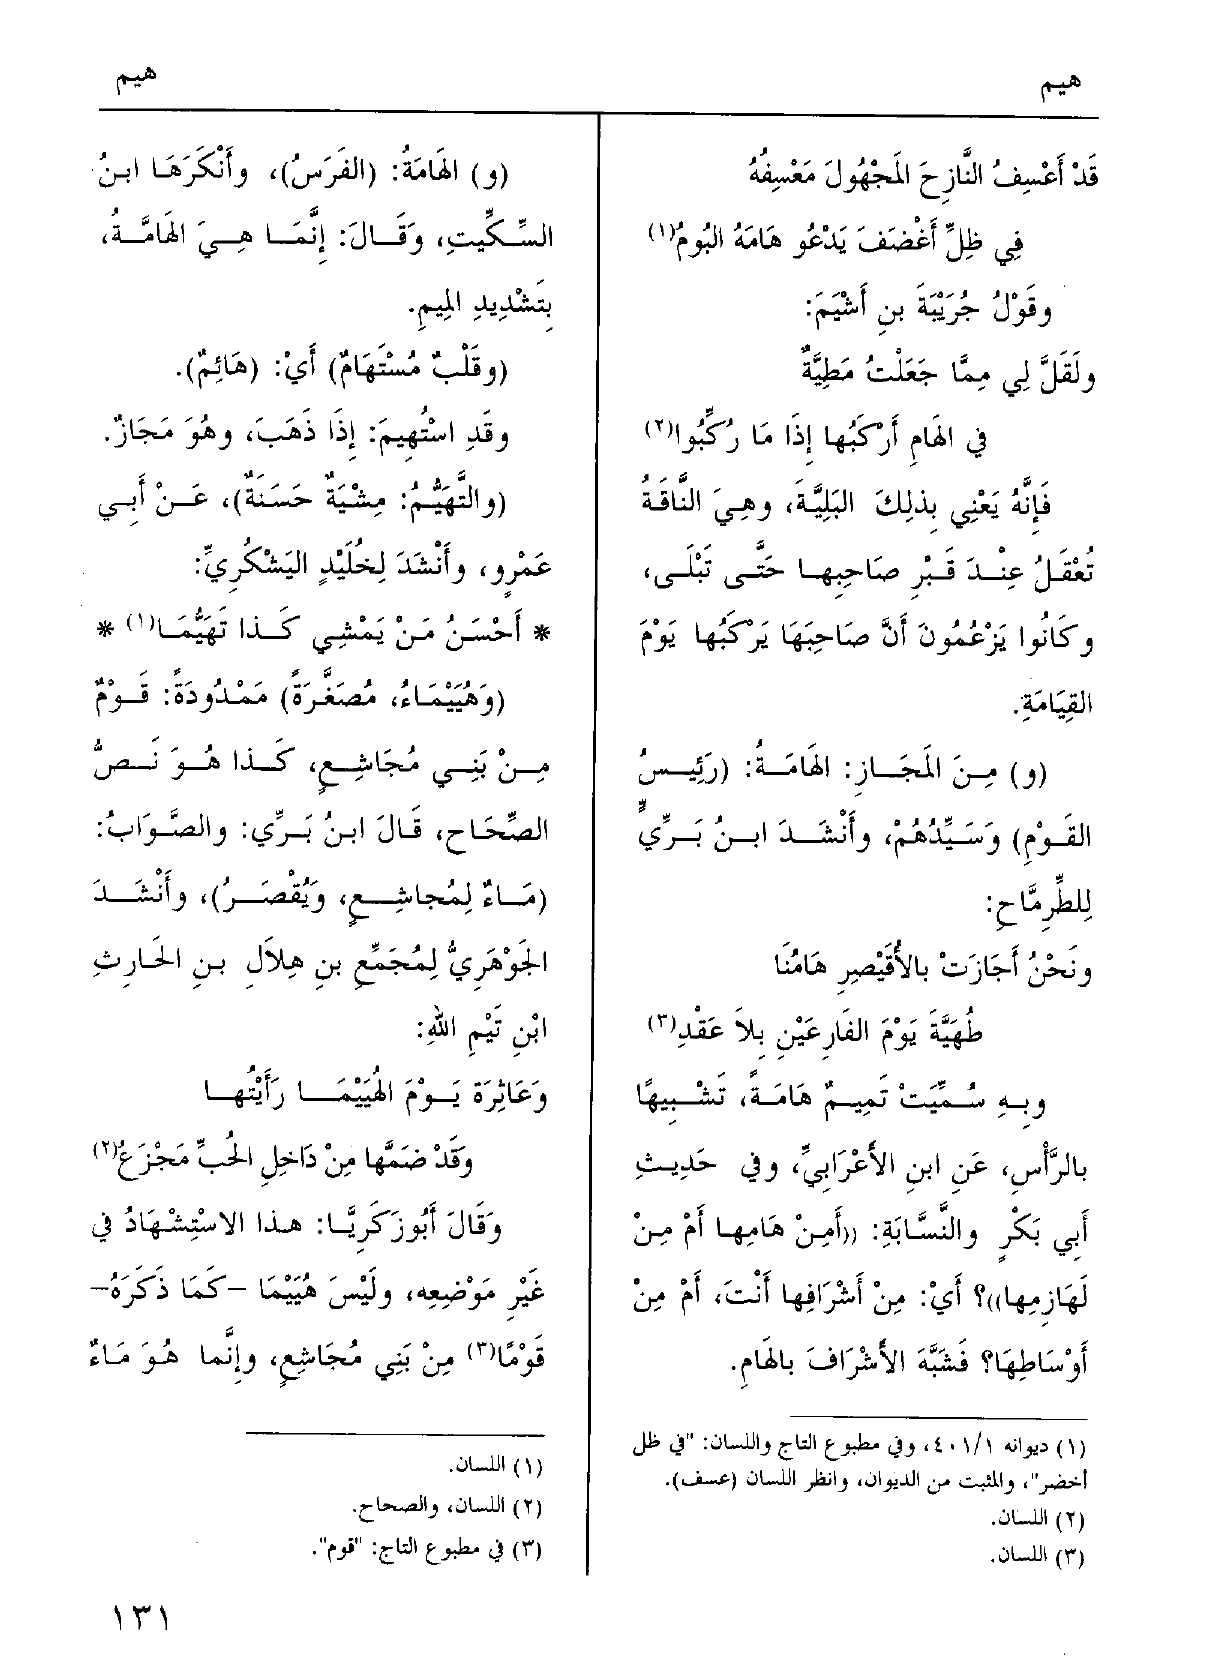 هيم
هيم
قَدْ أَعْسِفُ النَّازِحَ المَجْهُولَ مَعْسِفُهُ
فِي ظِلِّ أَغْضَفَ يَدْعُو هَامَهُ البُومُ(١)
وقَوْلُ جُرَيْبَةَ بنِ أَشْيَمَ:
ولَقَلَّ لِي مِمَّا جَعَلْتُ مَطِيَّةٌ
في الهَامِ أَرْكَبُها إِذَا مَا رُكِّبُوا(٢)
فَإِنَّهُ يَعْنِي بِذلِكَ البَلِيَّةَ، وهِيَ النَّاقَةُ
تُعْقَلُ عِنْدَ قَبْرِ صَاحِبِها حَتَّى تَبْلَى،
وكَانُوا يَزْعُمُونَ أَنَّ صَاحِبَهَا يَرْكَبُها يَوْمَ
القِيَامَةِ.
(و) مِنَ المَجَازِ: الهَامَةُ: (رَئِيسُ
القَوْمِ) وَسَيِّدُهُمْ، وأَنْشَدَ ابنُ بَرِّيٍّ
لِلطِّرِمَّاحِ:
ونَحْنُ أَجَازَتْ بالأُقَيْصِرِ هَامُنَا
طُهَيَّةَ يَوْمَ الفَارِعَيْنِ بِلاَ عَقْدِ(٣)
وبِهِ سُمِّيَتْ تَمِيمٌ هَامَةً، تَشْبِيهًا
بالرَّأْسِ، عَنِ ابنِ الأَعْرَابِيِّ، وفي حَدِيثِ
أَبِي بَكْرٍ والنَّسَّابَةِ: ((أَمِنْ هَامِها أَمْ مِنْ
لَهَازِمِها))؟ أَيْ: مِنْ أَشْرَافِها أَنْتَ، أَمْ مِنْ
أَوْسَاطِهَا؟ فَشَبَّهَ الأَشْرَافَ بالهَامِ.
(١) ديوانه ٤٠١/١، وفي مطبوع التاج واللسان: "في ظل
أخضر"، والمثبت من الديوان، وانظر اللسان (عسف).
(٢) اللسان.
(٣) اللسان.
(و) الهَامَةُ: (الفَرَسُ)، وأَنْكَرَهَا ابنُ
السِّكِّيتِ، وَقَالَ: إِنَّمَا هِيَ الهَامَّةُ،
بِتَشْدِيدِ المِيمِ.
(وقَلْبٌ مُسْتَهَامٌ) أَيْ: (هَائِمٌ).
وقَدِ اسْتُهِيمَ: إِذَا ذَهَبَ، وهُوَ مَجَازٌ.
(والتَّهَيُّمُ: مِشْيَةٌ حَسَنَةٌ)، عَنْ أَبِي
عَمْرٍو، وأَنْشَدَ لِخُلَيْدٍ اليَشْكُرِيِّ:
* أَحْسَنُ مَنْ يَمْشِي كَذا تَهَيُّمَا(١) *
(وَهُيَيْمَاءُ، مُصَغَّرَةً) مَمْدُودَةً: قَوْمٌ
مِنْ بَنِي مُجَاشِعٍ، كَذا هُوَ نَصُّ
الصِّحَاحِ، قَالَ ابنُ بَرِّي: والصَّوَابُ:
(مَاءٌ لِمُجاشِعٍ، وَيُقْصَرُ)، وأَنْشَدَ
الجَوْهَرِيُّ لِمُجَمِّعِ بنِ هِلاَلِ بنِ الحَارِثِ
ابْنِ تَيْمِ اللهِ:
وَعَاثِرَة يَوْمَ الهُيَيْمَا رَأَيْتُها
وقَدْ ضَمَّها مِنْ دَاخِلِ الحُبِّ مَجْزَعُ(٢)
وَقَالَ أَبُوزَكَرِيَّا: هذا الاسْتِشْهَادُ في
غَيْرِ مَوْضِعِه، ولَيْسَ هُيَيْمَا -كَمَا ذَكَرَهُ-
قَوْمًا(٣) مِنْ بَنِي مُجَاشِعٍ، وإِنَّما هُوَ مَاءٌ
(١) اللسان.
(٢) اللسان، والصحاح.
(٣) في مطبوع التاج: "قوم".
١٣١